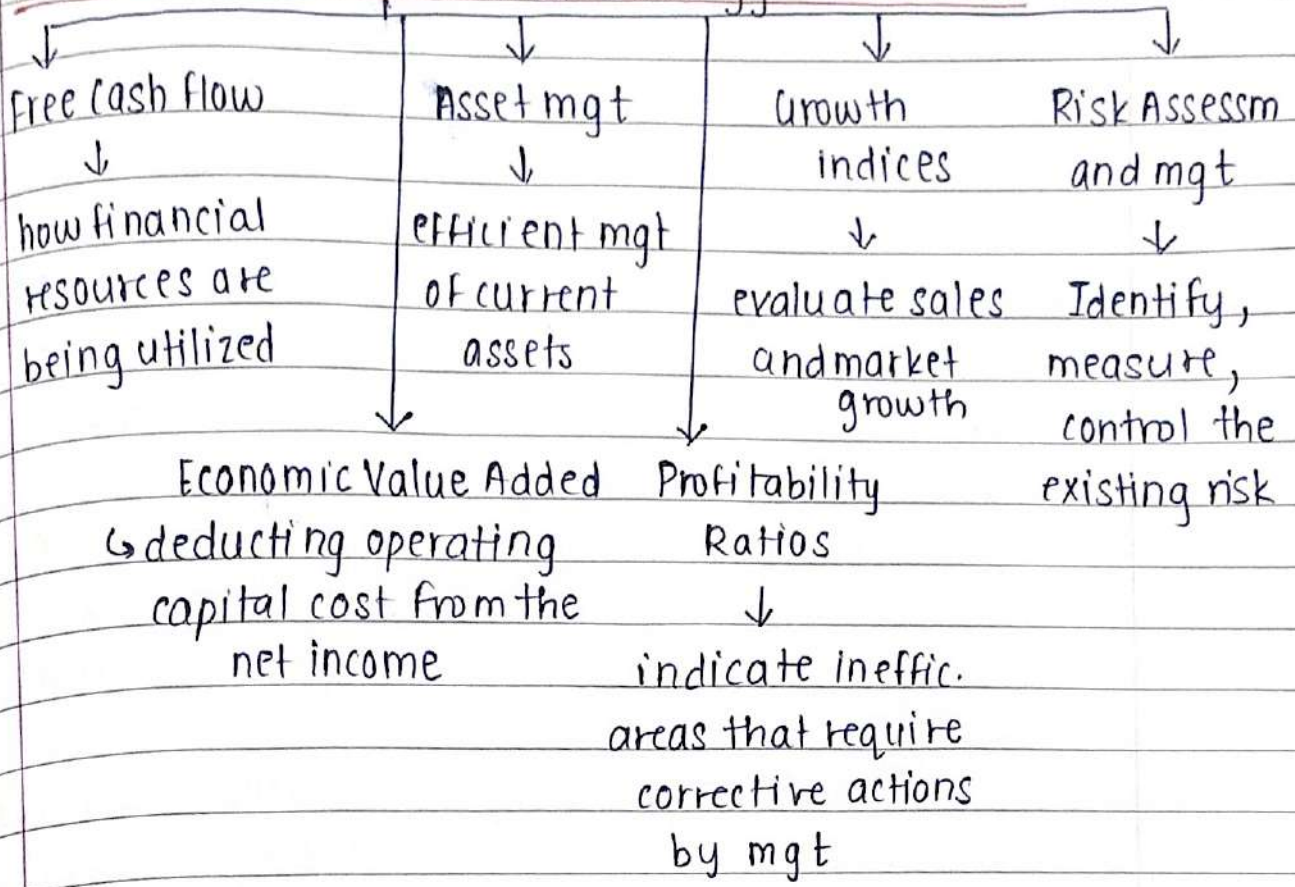 Free Cash Flow
↓
how financial
resources are
being utilized
Asset mgt
↓
efficient mgt
of current
assets
Growth
indices
↓
evaluate sales
and market
growth
Risk Assessm
and mgt
↓
Identify,
measure,
control the
existing risk
Economic Value Added
↳ deducting operating
capital cost from the
net income
Profitability
Ratios
↓
indicate ineffic.
areas that require
corrective actions
by mgt